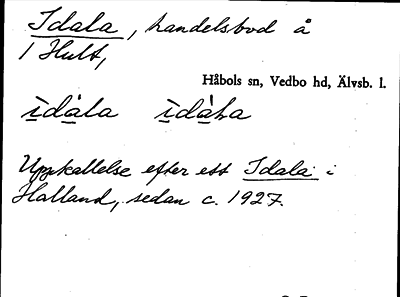 Idala, handelsbod å
1 Hult,
Håbols sn, Vedbo hd, Älvsb. l.
ìdàla ìdàƚa
Uppkallelse efter ett Idala i
Halland, sedan c. 1927.